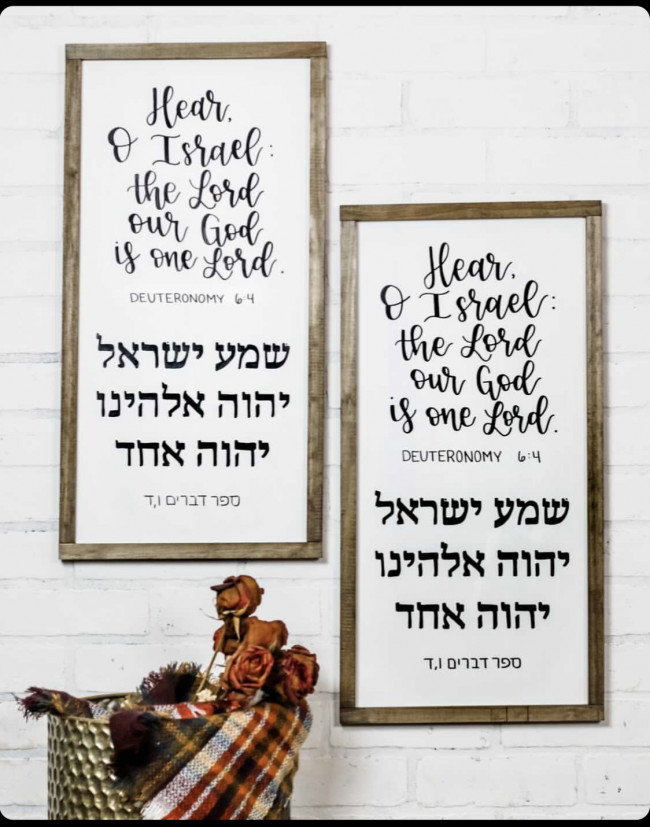 Hear,
O Israel:
the Lord
our God
is one Lord.
DEUTERONOMY 6:4
שמע ישראל
יהוה אלהינו
יהוה אחד
ספר דברים ו,ד
Hear,
O Israel:
the Lord
our God
is one Lord.
DEUTERONOMY 6:4
שמע ישראל
יהוה אלהינו
יהוה אחד
ספר דברים ו,ד